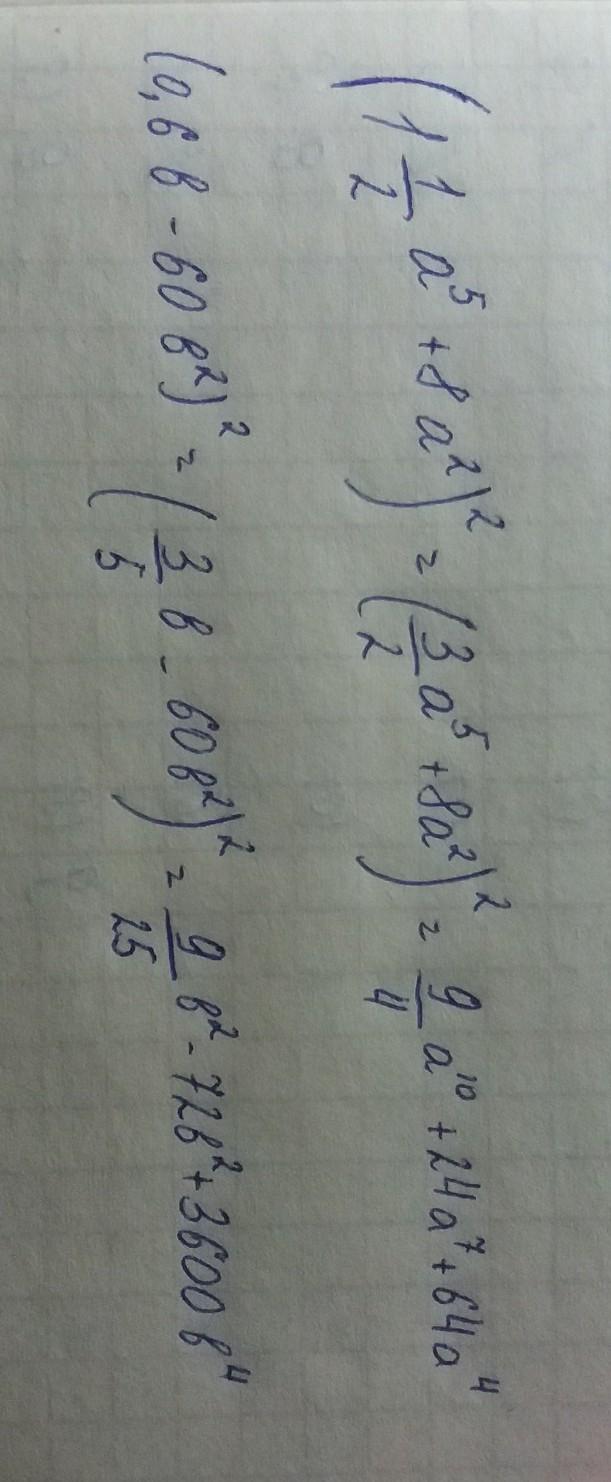 (1 1/2 a⁵ + 8a²)² = (3/2 a⁵ + 8a²)² = 9/4 a¹⁰ + 24a⁷ + 64a⁴
(0,6в - 60в²)² = (3/5 в - 60в²)² = 9/25 в² - 72в² + 3600в⁴